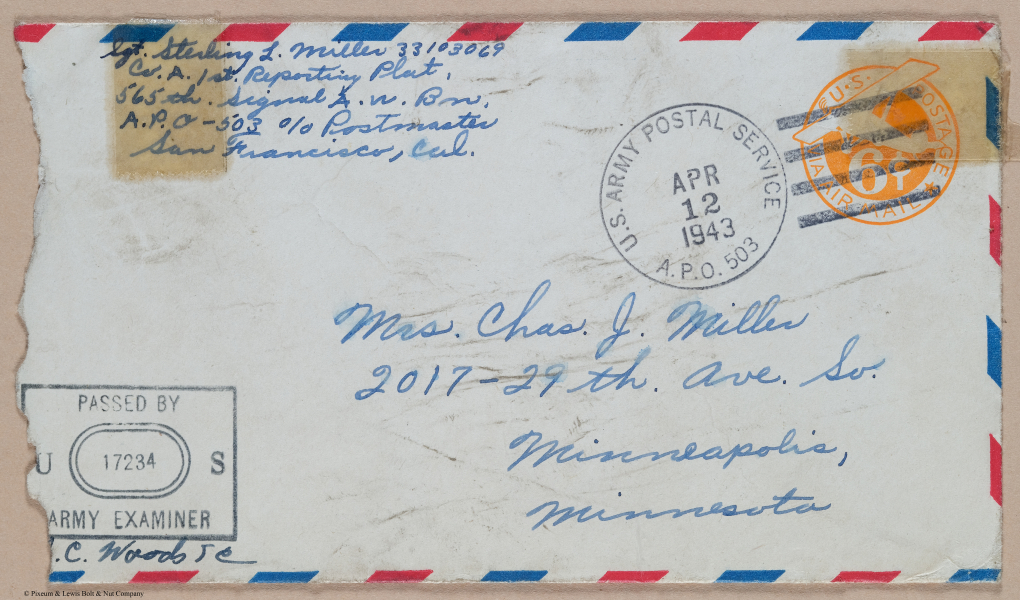 Sgt. Sterling L. Miller 33103069
Co. A. 1st. Reporting Plat.
565th. Signal A. W. Bn.
A.P.O-503 c/o Postmaster
San Francisco, Cal.
U.S. ARMY POSTAL SERVICE
APR
12
1943
A.P.O. 503
U.S. POSTAGE
6¢
VIA AIR MAIL
Mrs. Chas. J. Miller
2017-29th. Ave. So.
Minneapolis,
Minnesota
PASSED BY
U 17234 S
ARMY EXAMINER
.C. Woods
© Pixeum & Lewis Bolt & Nut Company